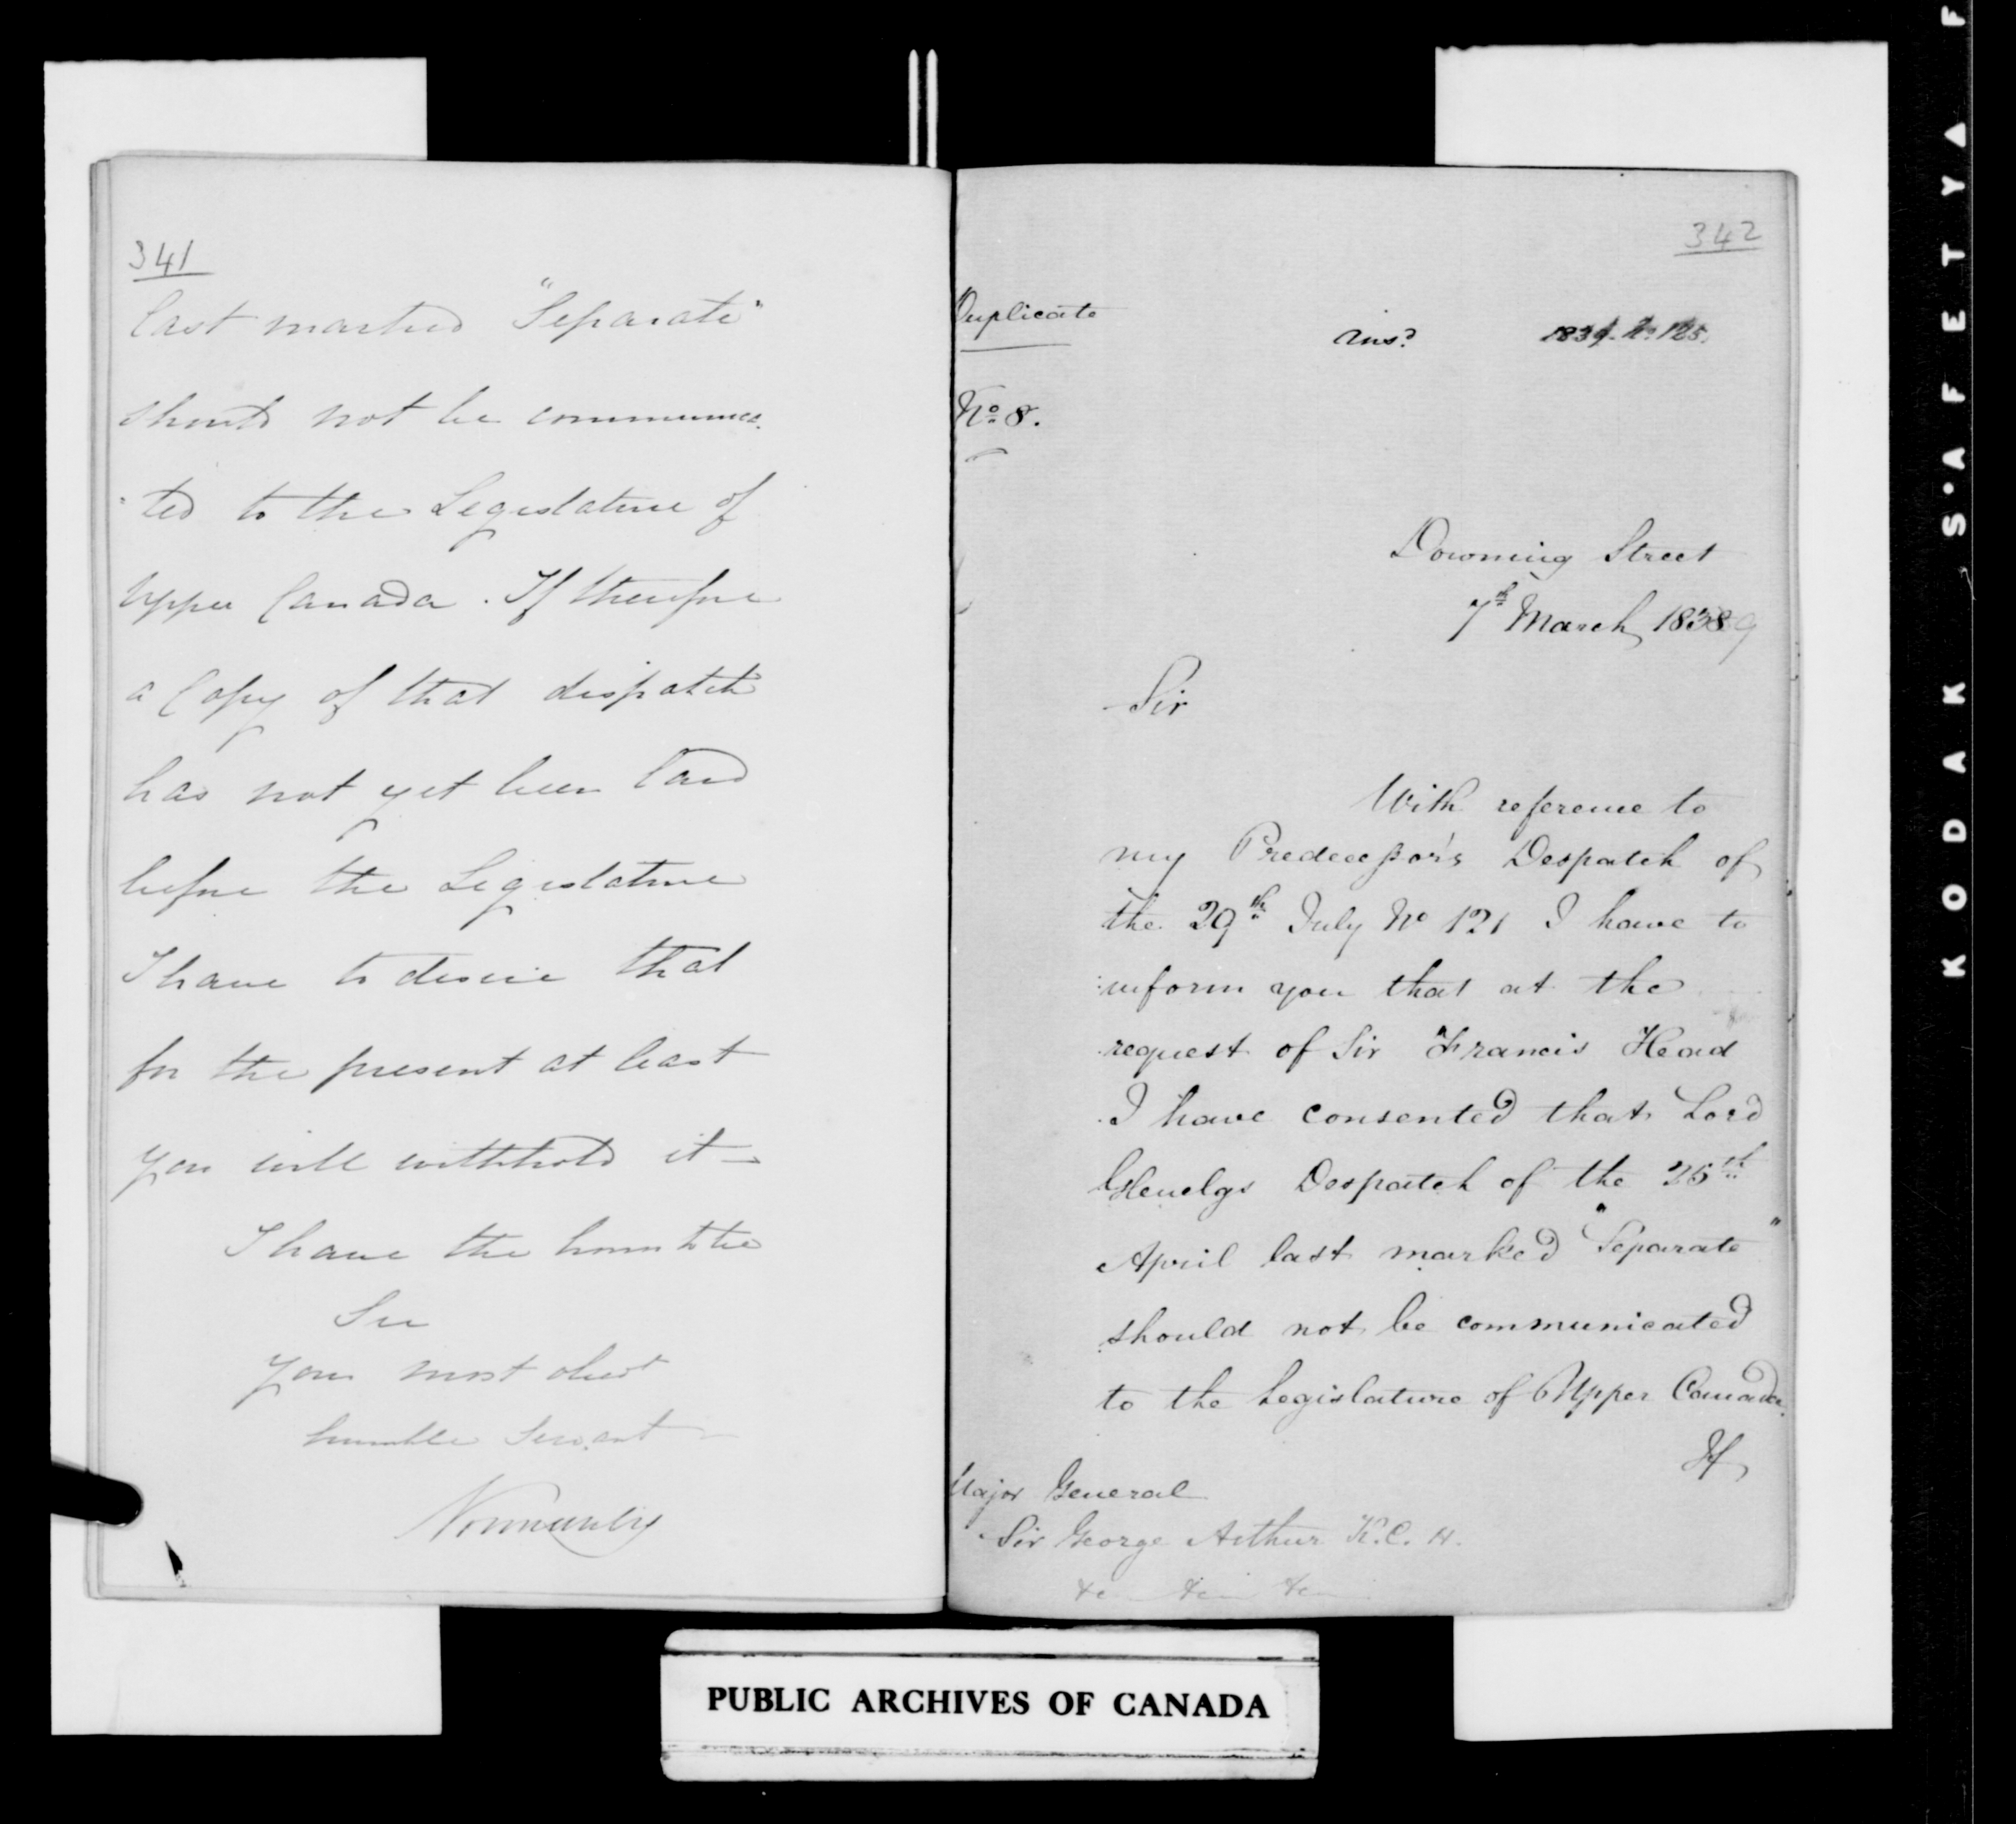 341
last marked "Separate"
should not be communica-
-ted to the Legislature of
Upper Canada. If therefore
a Copy of that dispatch
has not yet been laid
before the Legislature
I have to desire that
for the present at least
you will withhold it—
I have the honor to be
Sir
Your most obedt
humble Servant
Normanby
342
Duplicate
No 8.
Downing Street
7th March 18389
Sir
With reference to
my Predecessor's Despatch of
the 29th July No 121 I have to
inform you that at the
request of Sir Francis Head
I have consented that Lord
Glenelgs Despatch of the 25th
April last marked "Separate"
should not be communicated
to the Legislature of Upper Canada.
If
Major General
Sir George Arthur K.C.H.
&c &c &c
PUBLIC ARCHIVES OF CANADA
KODAK S'AFETY F